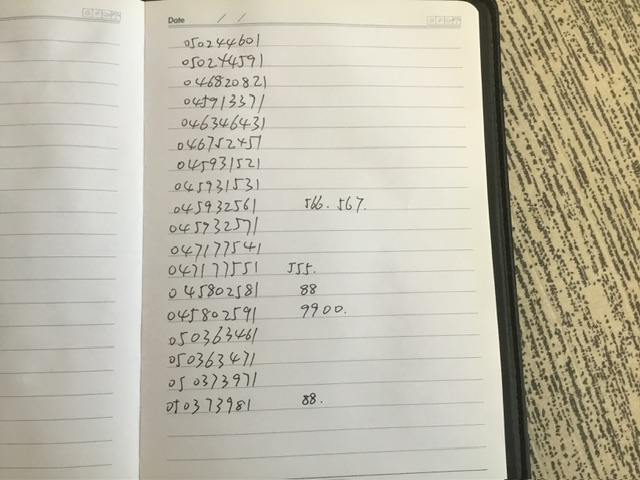 Date / /
050244601
050274591
046820821
045913371
046346431
046752451
045931521
045931531
045932561 566. 567.
045932571
047177541
047177551 555.
045802581 88
045802591 9900.
050363461
050363471
050373971
050373981 88.